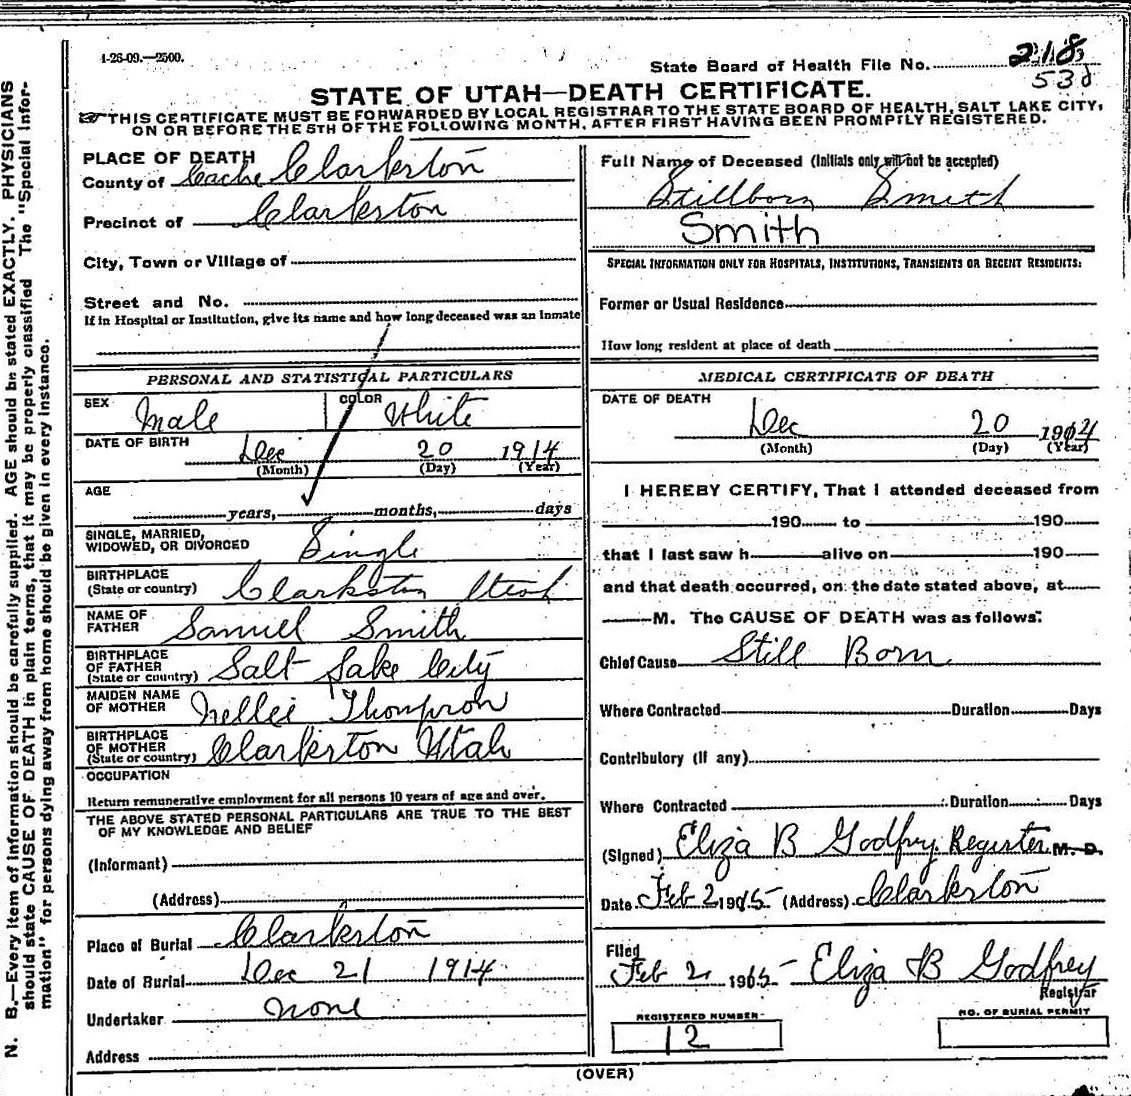 1-26-09.—2500.
State Board of Health File No. 218
530
STATE OF UTAH—DEATH CERTIFICATE.
☞THIS CERTIFICATE MUST BE FORWARDED BY LOCAL REGISTRAR TO THE STATE BOARD OF HEALTH, SALT LAKE CITY,
ON OR BEFORE THE 5TH OF THE FOLLOWING MONTH, AFTER FIRST HAVING BEEN PROMPTLY REGISTERED.
PLACE OF DEATH
County of Cache Clarkston
Precinct of Clarkston
City, Town or Village of
Street and No.
If in Hospital or Institution, give its name and how long deceased was an inmate
PERSONAL AND STATISTICAL PARTICULARS
SEX Male COLOR White
DATE OF BIRTH Dec 20 1914
(Month) (Day) (Year)
AGE
years, months, days
SINGLE, MARRIED,
WIDOWED, OR DIVORCED Single
BIRTHPLACE
(State or country) Clarkston Utah
NAME OF
FATHER Samuel Smith
BIRTHPLACE
OF FATHER
(State or country) Salt Lake City
MAIDEN NAME
OF MOTHER Nellie Thompson
BIRTHPLACE
OF MOTHER
(State or country) Clarkston Utah
OCCUPATION
Return remunerative employment for all persons 10 years of age and over.
THE ABOVE STATED PERSONAL PARTICULARS ARE TRUE TO THE BEST
OF MY KNOWLEDGE AND BELIEF
(Informant)
(Address)
Place of Burial Clarkston
Date of Burial Dec 21 1914
Undertaker none
Address
Full Name of Deceased (Initials only will not be accepted)
Stillborn Smith
Smith
SPECIAL INFORMATION ONLY FOR HOSPITALS, INSTITUTIONS, TRANSIENTS OR RECENT RESIDENTS:
Former or Usual Residence
How long resident at place of death
MEDICAL CERTIFICATE OF DEATH
DATE OF DEATH
Dec 20 1914
(Month) (Day) (Year)
I HEREBY CERTIFY, That I attended deceased from
190 to 190
that I last saw h alive on 190
and that death occurred, on the date stated above, at
M. The CAUSE OF DEATH was as follows:
Chief Cause Still Born
Where Contracted Duration Days
Contributory (if any)
Where Contracted Duration Days
(Signed) Eliza B Godfrey Register M. D.
Date Feb 2 1915 (Address) Clarkston
Filed
Feb 2 1915 Eliza B Godfrey
Registrar
REGISTERED NUMBER
12
NO. OF BURIAL PERMIT
(OVER)
N. B.—Every item of information should be carefully supplied. AGE should be stated EXACTLY. PHYSICIANS
should state CAUSE OF DEATH in plain terms, that it may be properly classified The "Special Infor-
mation" for persons dying away from home should be given in every instance.